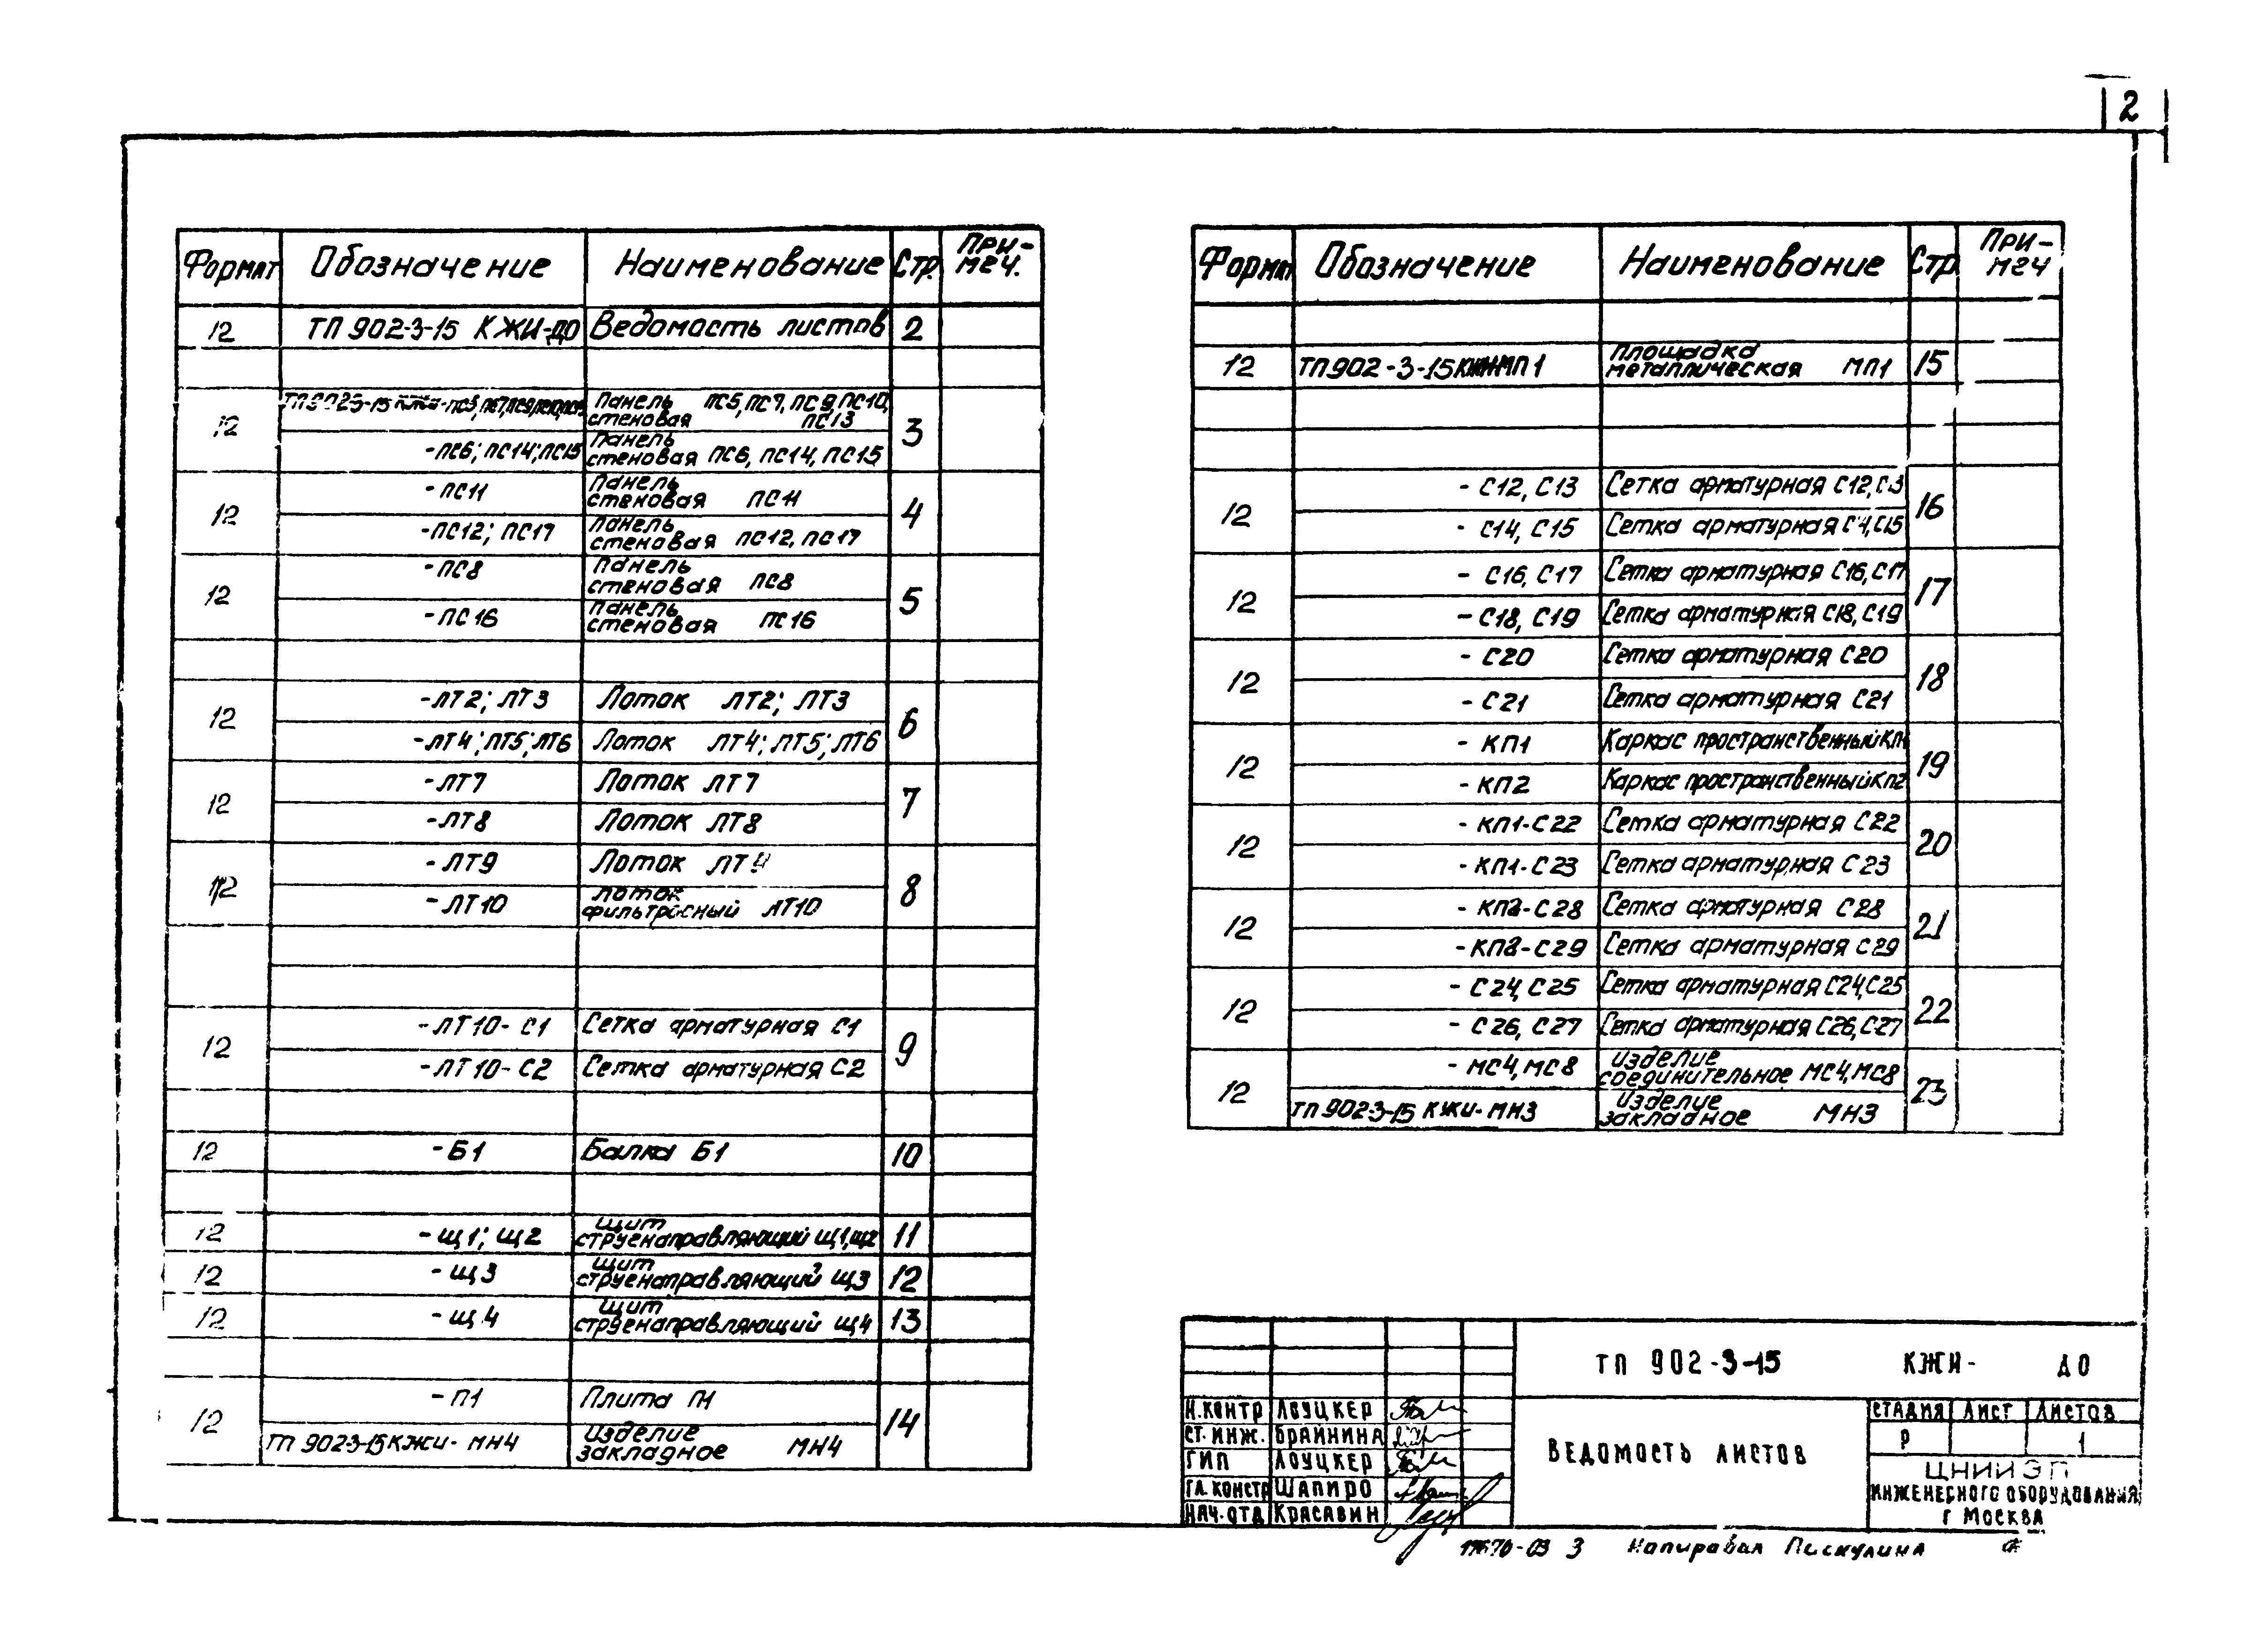 2
Формат Обозначение Наименование Стр. При-меч.
12 ТП 902-3-15 КЖИ-ДО Ведомость листов 2
12 Панель стеновая ПС5, ПС7, ПС9, ПС10, ПС13 3
-ПС6; ПС14; ПС15 Панель стеновая ПС6, ПС14, ПС15
12 -ПС11 Панель стеновая ПС11 4
-ПС12; ПС17 Панель стеновая ПС12, ПС17
12 -ПС8 Панель стеновая ПС8 5
-ПС16 Панель стеновая ПС16
12 -ЛТ2; ЛТ3 Лоток ЛТ2; ЛТ3 6
-ЛТ4; ЛТ5; ЛТ6 Лоток ЛТ4; ЛТ5; ЛТ6
12 -ЛТ7 Лоток ЛТ7 7
-ЛТ8 Лоток ЛТ8
12 -ЛТ9 Лоток 8
-ЛТ10 Лоток фильтросный ЛТ10
12 -ЛТ10-С1 Сетка арматурная С1 9
-ЛТ10-С2 Сетка арматурная С2
12 -Б1 Балка Б1 10
12 -Щ1; Щ2 Щит струенаправляющий Щ1, Щ2 11
12 -Щ3 Щит струенаправляющий Щ3 12
12 -Щ4 Щит струенаправляющий Щ4 13
12 -П1 Плита П1 14
ТП 902-3-15 КЖИ-МН4 Изделие закладное МН4
Формат Обозначение Наименование Стр При-меч
12 ТП 902-3-15 КЖИ-МП1 Площадка металлическая МП1 15
12 - С12, С13 Сетка арматурная С12, С13 16
- С14, С15 Сетка арматурная С14, С15
12 - С16, С17 Сетка арматурная С16, С17 17
- С18, С19 Сетка арматурная С18, С19
12 - С20 Сетка арматурная С20 18
- С21 Сетка арматурная С21
12 - КП1 Каркас пространственный КП1 19
- КП2 Каркас пространственный КП2
12 - КП1-С22 Сетка арматурная С22 20
- КП1-С23 Сетка арматурная С23
12 - КП2-С28 Сетка арматурная С28 21
- КП2-С29 Сетка арматурная С29
12 - С24, С25 Сетка арматурная С24, С25 22
- С26, С27 Сетка арматурная С26, С27
12 - МС4, МС8 Изделие соединительное МС4, МС8 23
ТП 902-3-15 КЖИ-МН3 Изделие закладное МН3
ТП 902-3-15 КЖИ- ДО
Н.КОНТР ЛОУЦКЕР
СТ. ИНЖ. БРАЙНИНА
ГИП ЛОУЦКЕР
ГЛ. КОНСТР ШАПИРО
НАЧ. ОТД КРАСАВИН
ВЕДОМОСТЬ ЛИСТОВ
СТАДИЯ ЛИСТ ЛИСТОВ
Р 1
ЦНИИЭП
ИНЖЕНЕРНОГО ОБОРУДОВАНИЯ
Г МОСКВА
17670-03 3 Копировал Пискулина